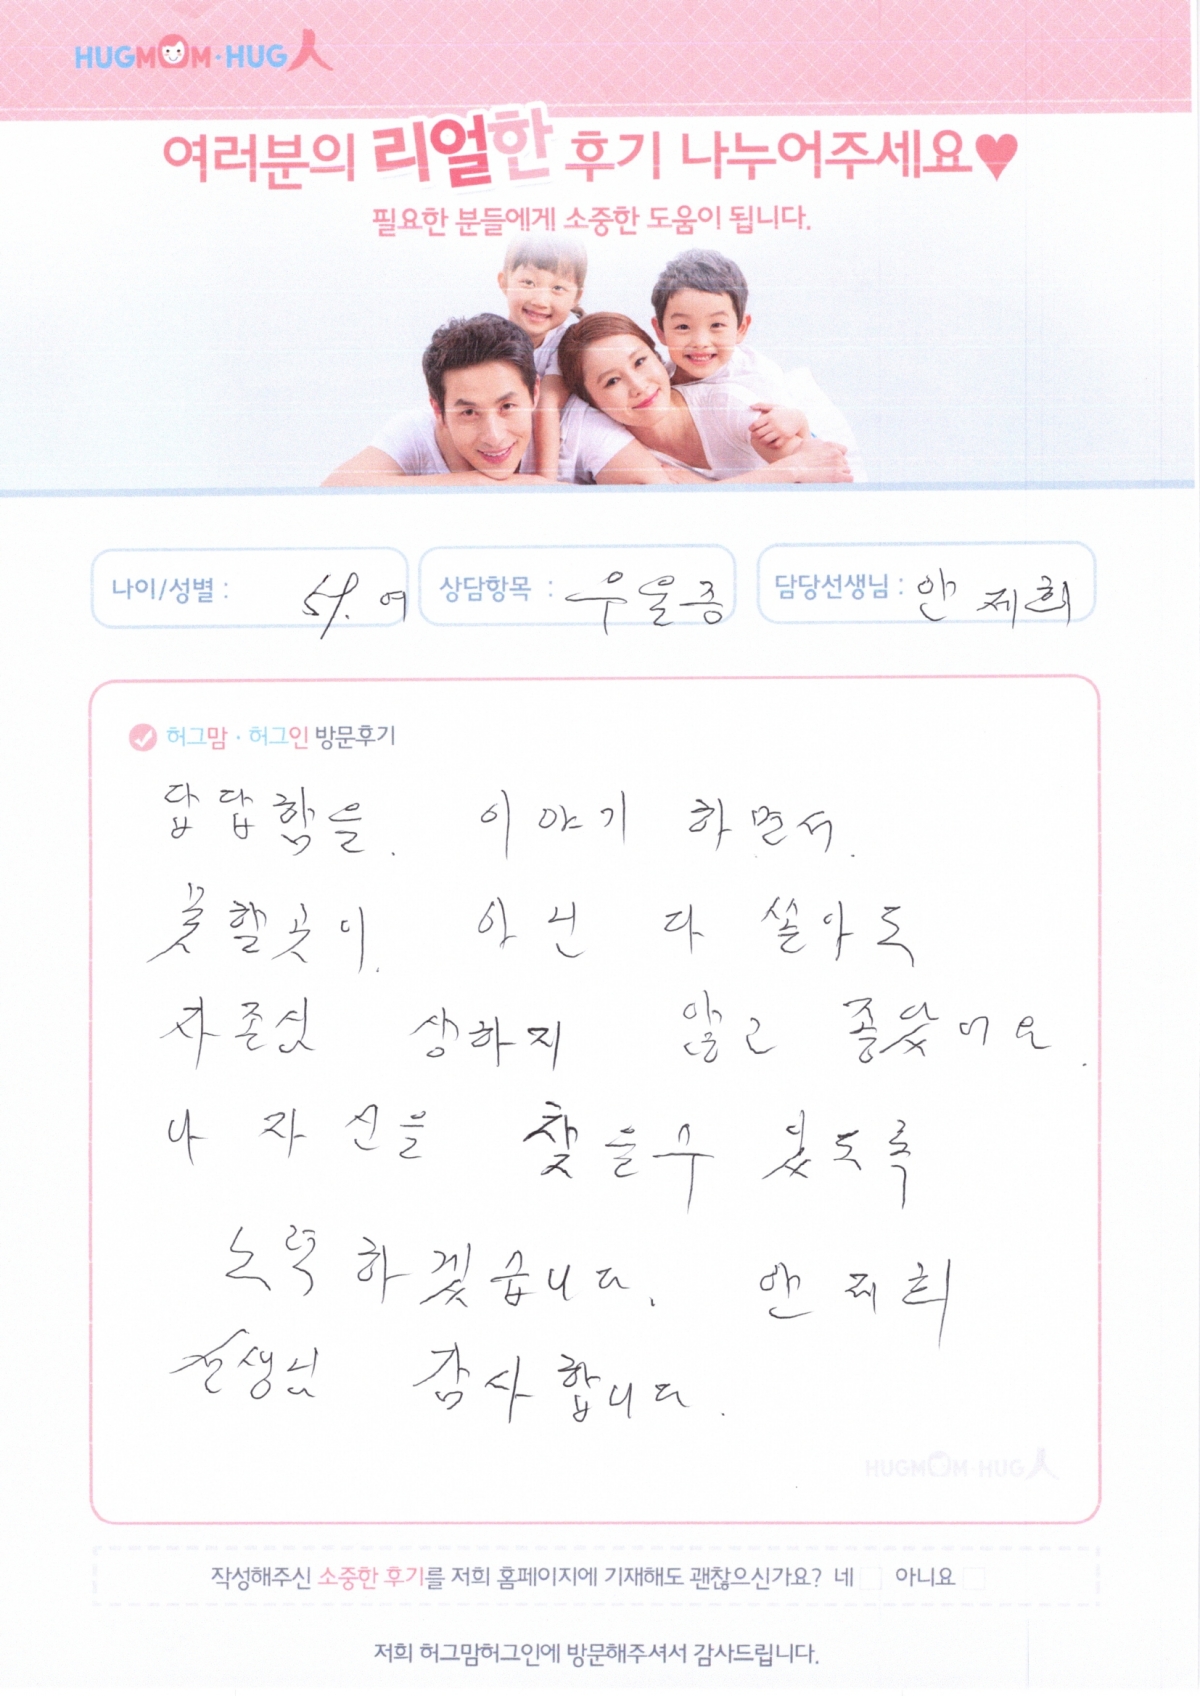 HUGMOM·HUG人
여러분의 리얼한 후기 나누어주세요♥
필요한 분들에게 소중한 도움이 됩니다.
나이/성별 : 59. 여 상담항목 : 우울증 담당선생님 : 안제희
허그맘·허그인 방문후기
답답함을. 이야기 하면서.
못할곳이. 아닌 다 쏟아도
자존심 상하지 않고 좋았어요.
나 자신을 찾을수 있도록
노력하겠습니다. 안제희
선생님 감사합니다.
HUGMOM·HUG人
작성해주신 소중한 후기를 저희 홈페이지에 기재해도 괜찮으신가요? 네 아니요
저희 허그맘허그인에 방문해주셔서 감사드립니다.